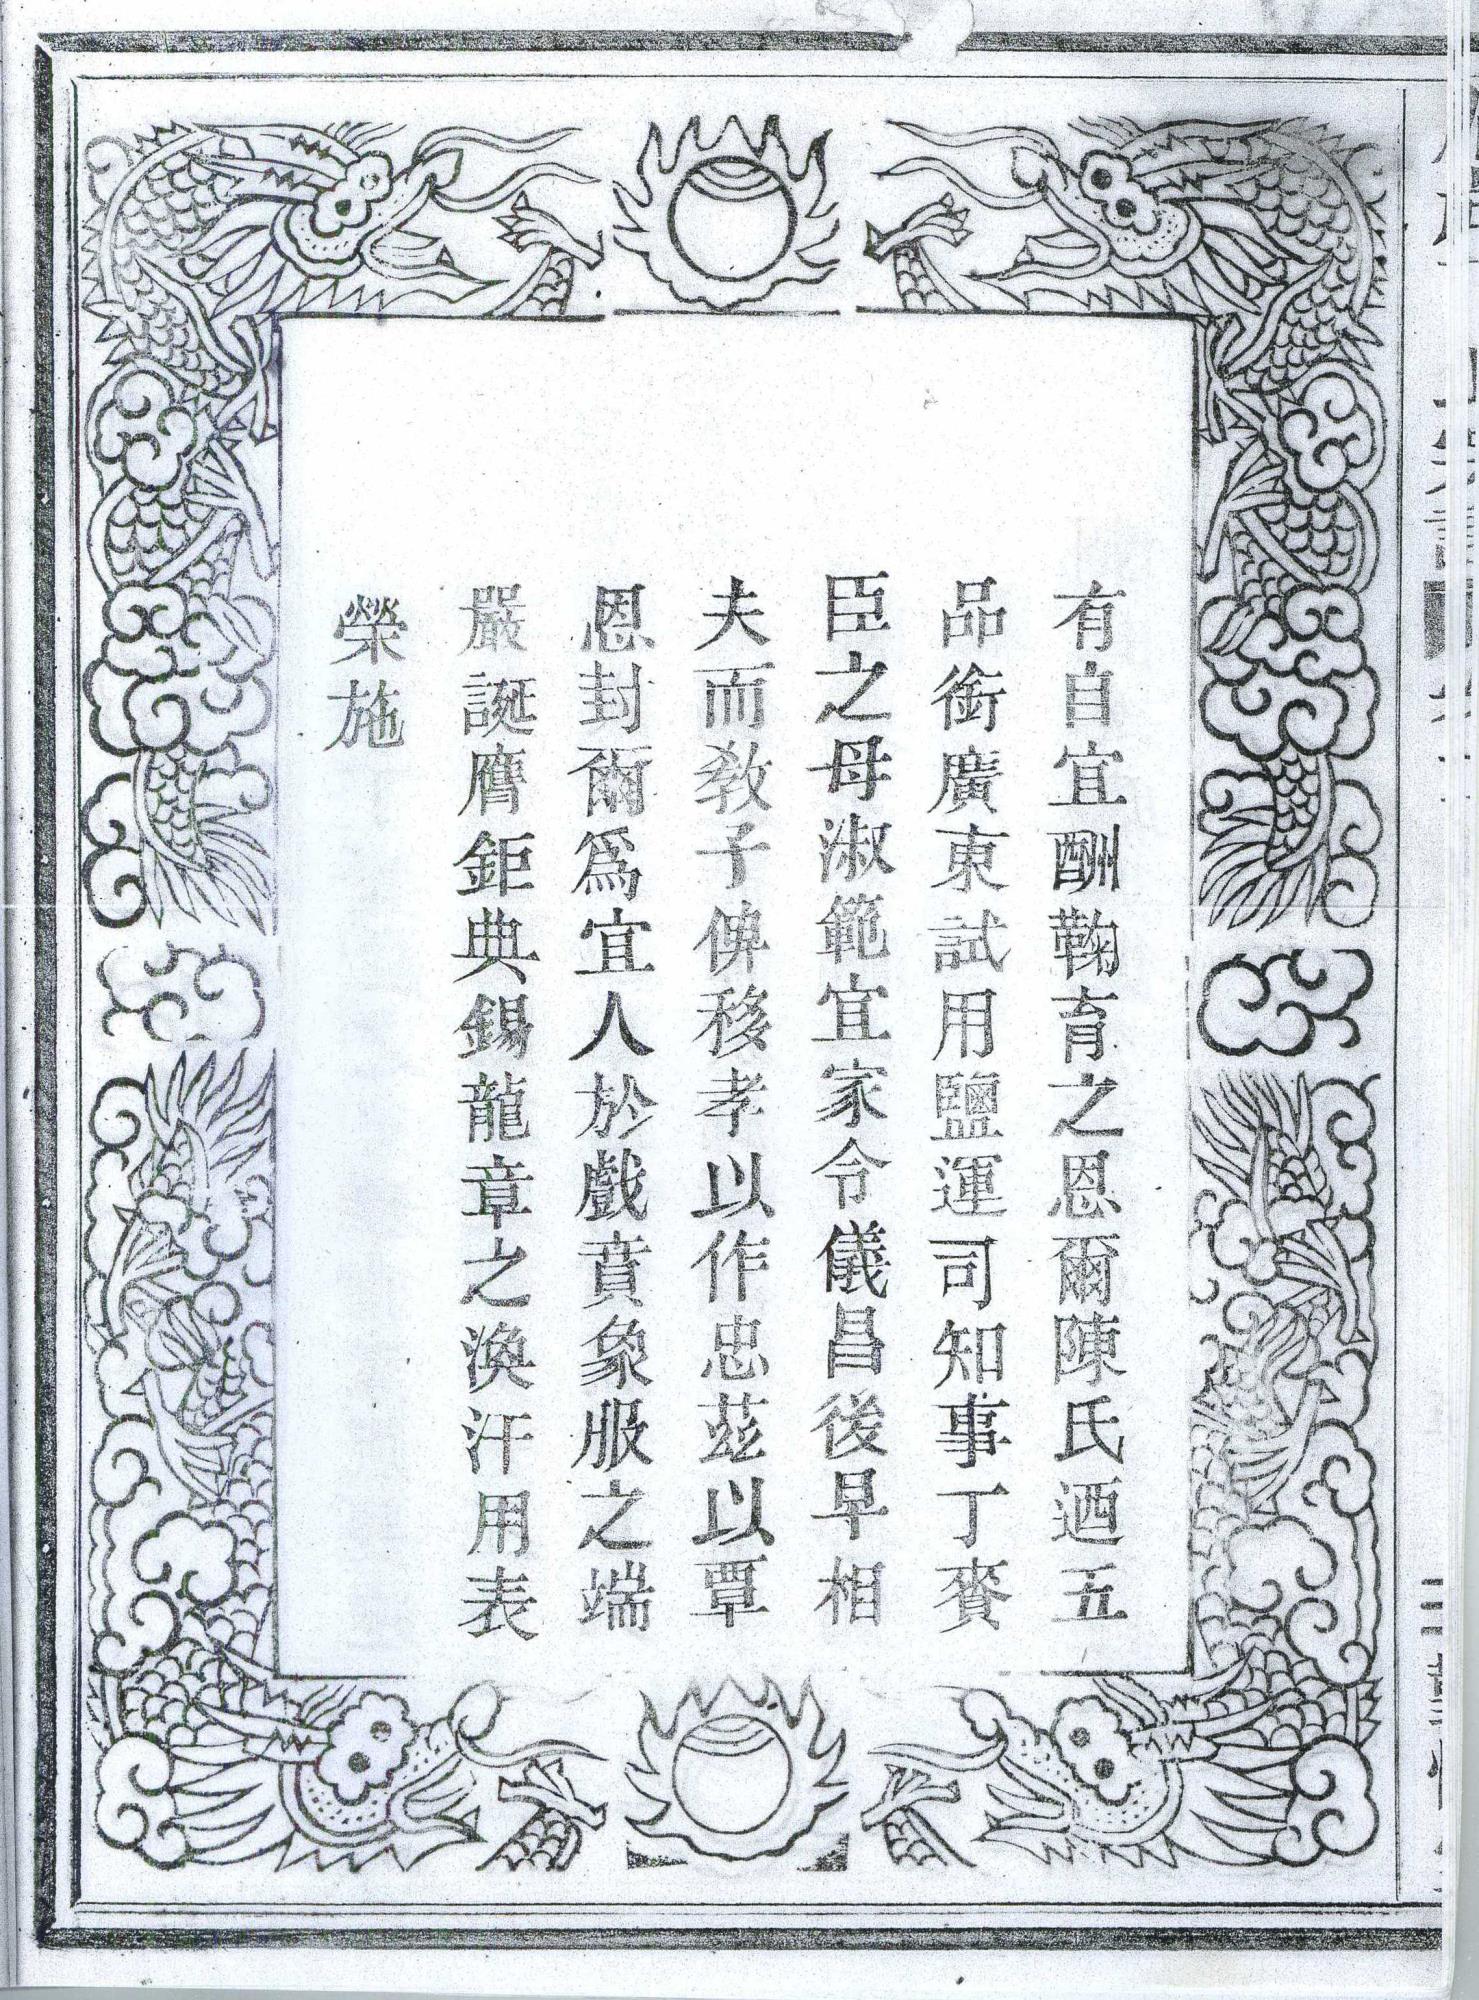 有自宜酬鞠育之恩爾陳氏迺五
品銜廣東試用鹽運司知事丁賚
臣之母淑範宜家令儀昌後早相
夫而教子俾移孝以作忠茲以覃
恩封爾爲宜人於戲賁象服之端
嚴誕膺鉅典錫龍章之渙汗用表
榮施